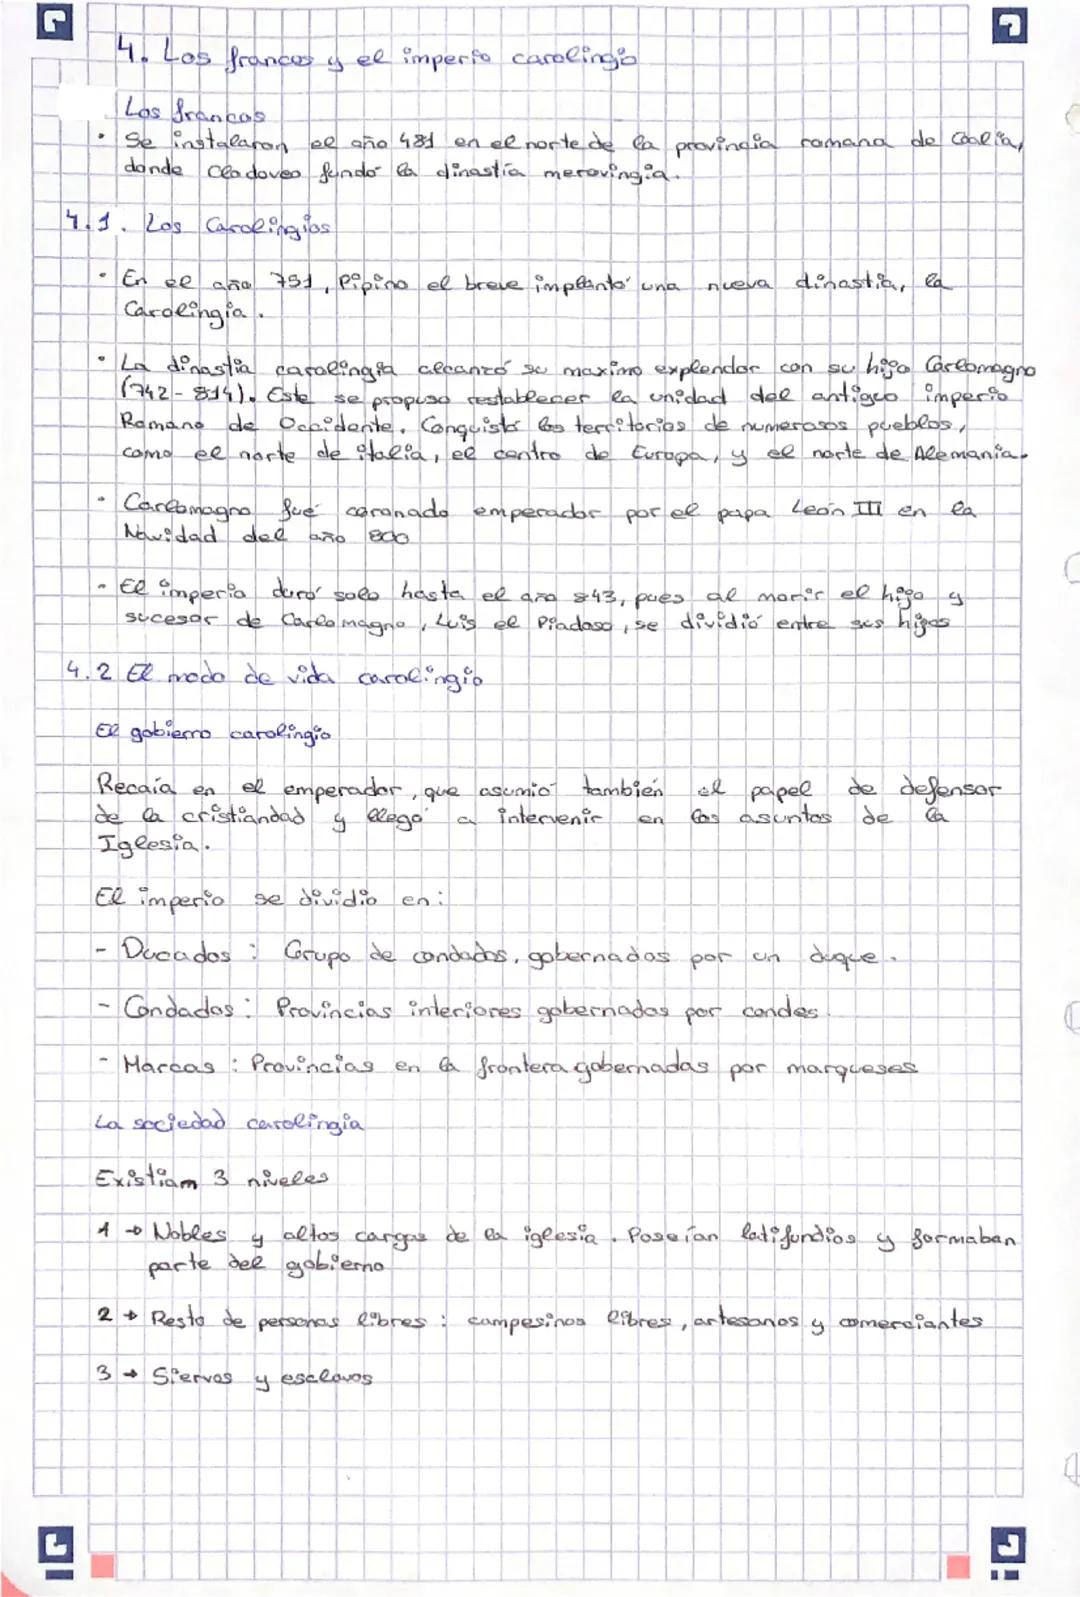 4. Los francos y el imperio carolingio
Los francos
• Se instalaron el año 481 en el norte de la provincia romana de Galia,
donde Clodoveo fundó la dinastía merovingia.
4.1. Los Carolingios
• En el año 751, Pipino el breve implantó una nueva dinastia, la
Carolingia.
• La dinastia carolingia alcanzó su maximo explendor con su hijo Carlomagno
(742-814). Este se propuso restablecer la unidad del antiguo imperio
Romano de Occidente. Conquistó los territorios de numerosos pueblos,
como el norte de italia, el centro de Europa, y el norte de Alemania.
• Carlomagno fué coronado emperador por el papa León III en la
Navidad del año 800
• El imperio duró solo hasta el año 843, pues al morir el hijo y
sucesor de Carlomagno, Luis el Piadoso, se dividió entre sus hijos
4.2 El modo de vida carolingio
El gobierno carolingio
Recaía en el emperador, que asumió también el papel de defensor
de la cristiandad y llegó a intervenir en los asuntos de la
Iglesia.
El imperio se dividio en:
- Ducados: Grupo de condados, gobernados por un duque.
- Condados: Provincias interiores gobernadas por condes.
- Marcas: Provincias en la frontera gobernadas por marqueses
La sociedad carolingia
Existiam 3 niveles
1 → Nobles y altos cargos de la iglesia. Poseían latifundios y formaban
parte del gobierno
2 → Resto de personas libres: campesinos libres, artesanos y comerciantes
3 → Siervos y esclavos